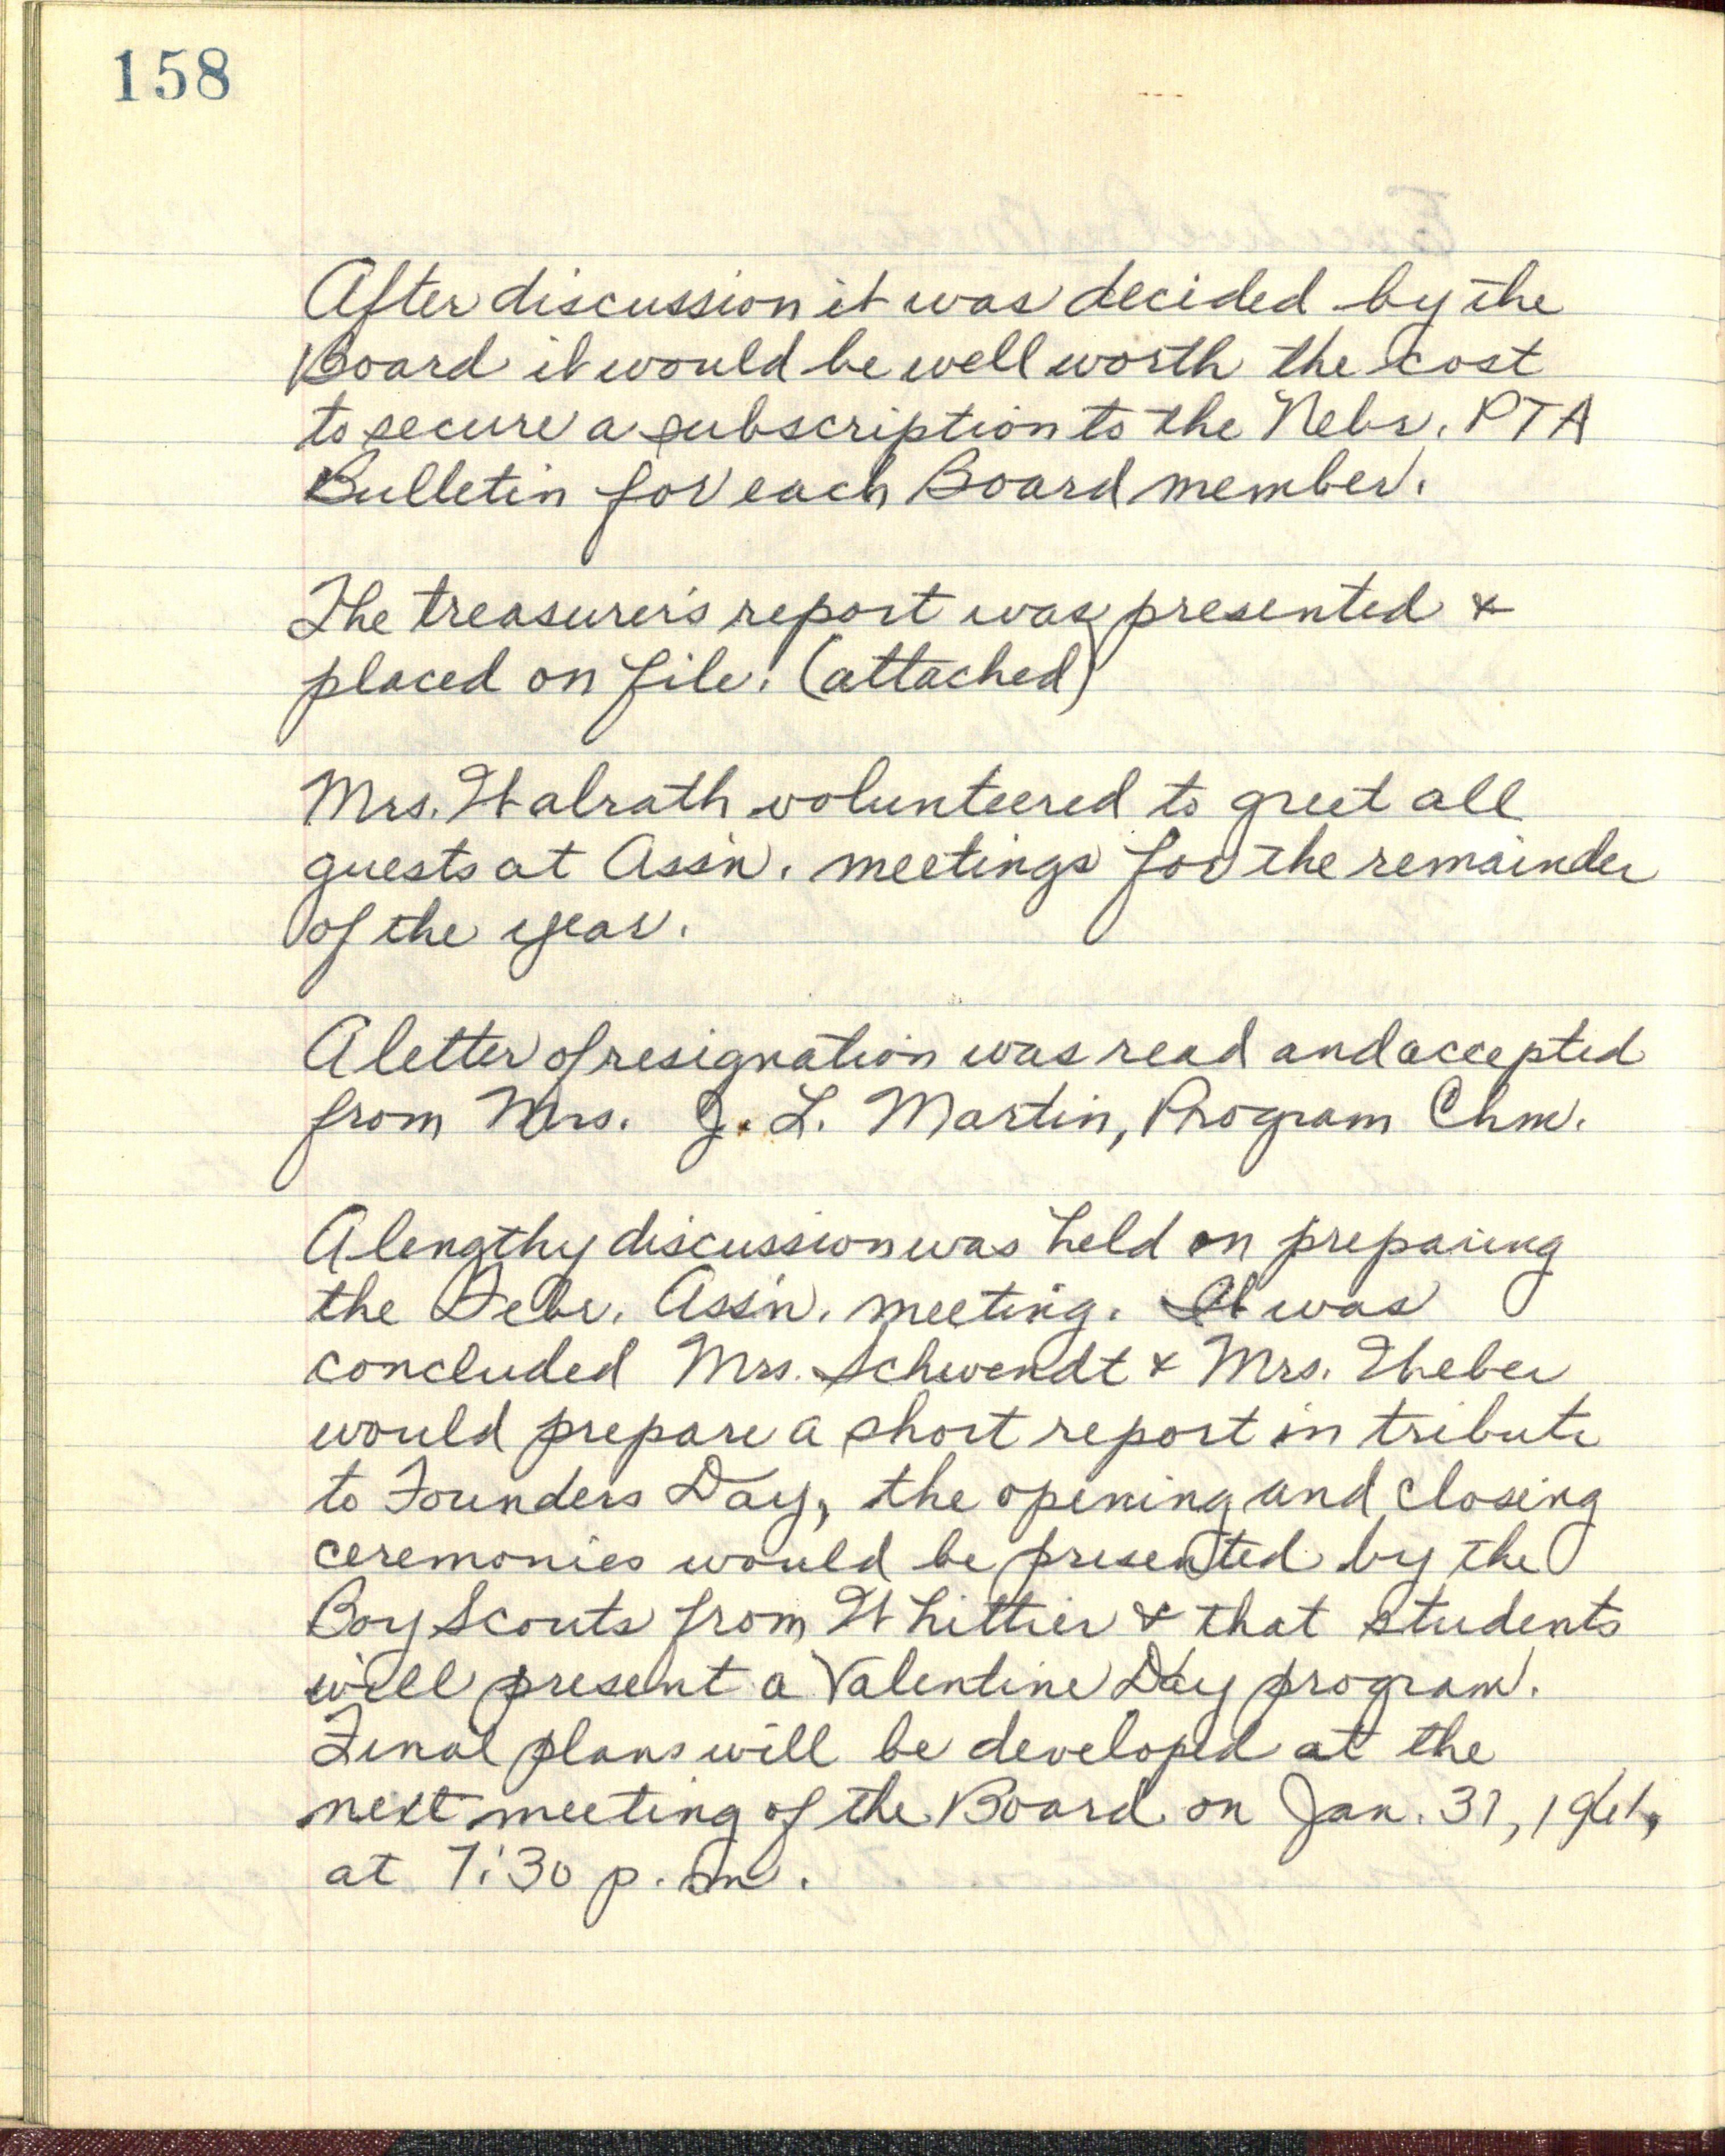 158
After discussion it was decided by the
Board it would be well worth the cost
to secure a subscription to the Nebr. PTA
Bulletin for each Board member.
The treasurer's report was presented &
placed on file. (attached)
Mrs. Walrath volunteered to greet all
guests at Ass'n. meetings for the remainder
of the year.
A letter of resignation was read and accepted
from Mrs. J. L. Martin, Program Chm.
A lengthy discussion was held on preparing
the Febr. Ass'n. meeting. It was
concluded Mrs. Schwendt & Mrs. Weber
would prepare a short report in tribute
to Founders Day, the opening and closing
ceremonies would be presented by the
Boy Scouts from Whittier & that students
will present a Valentine Day program.
Final plans will be developed at the
next meeting of the Board on Jan. 31, 1961,
at 7:30 p.m.